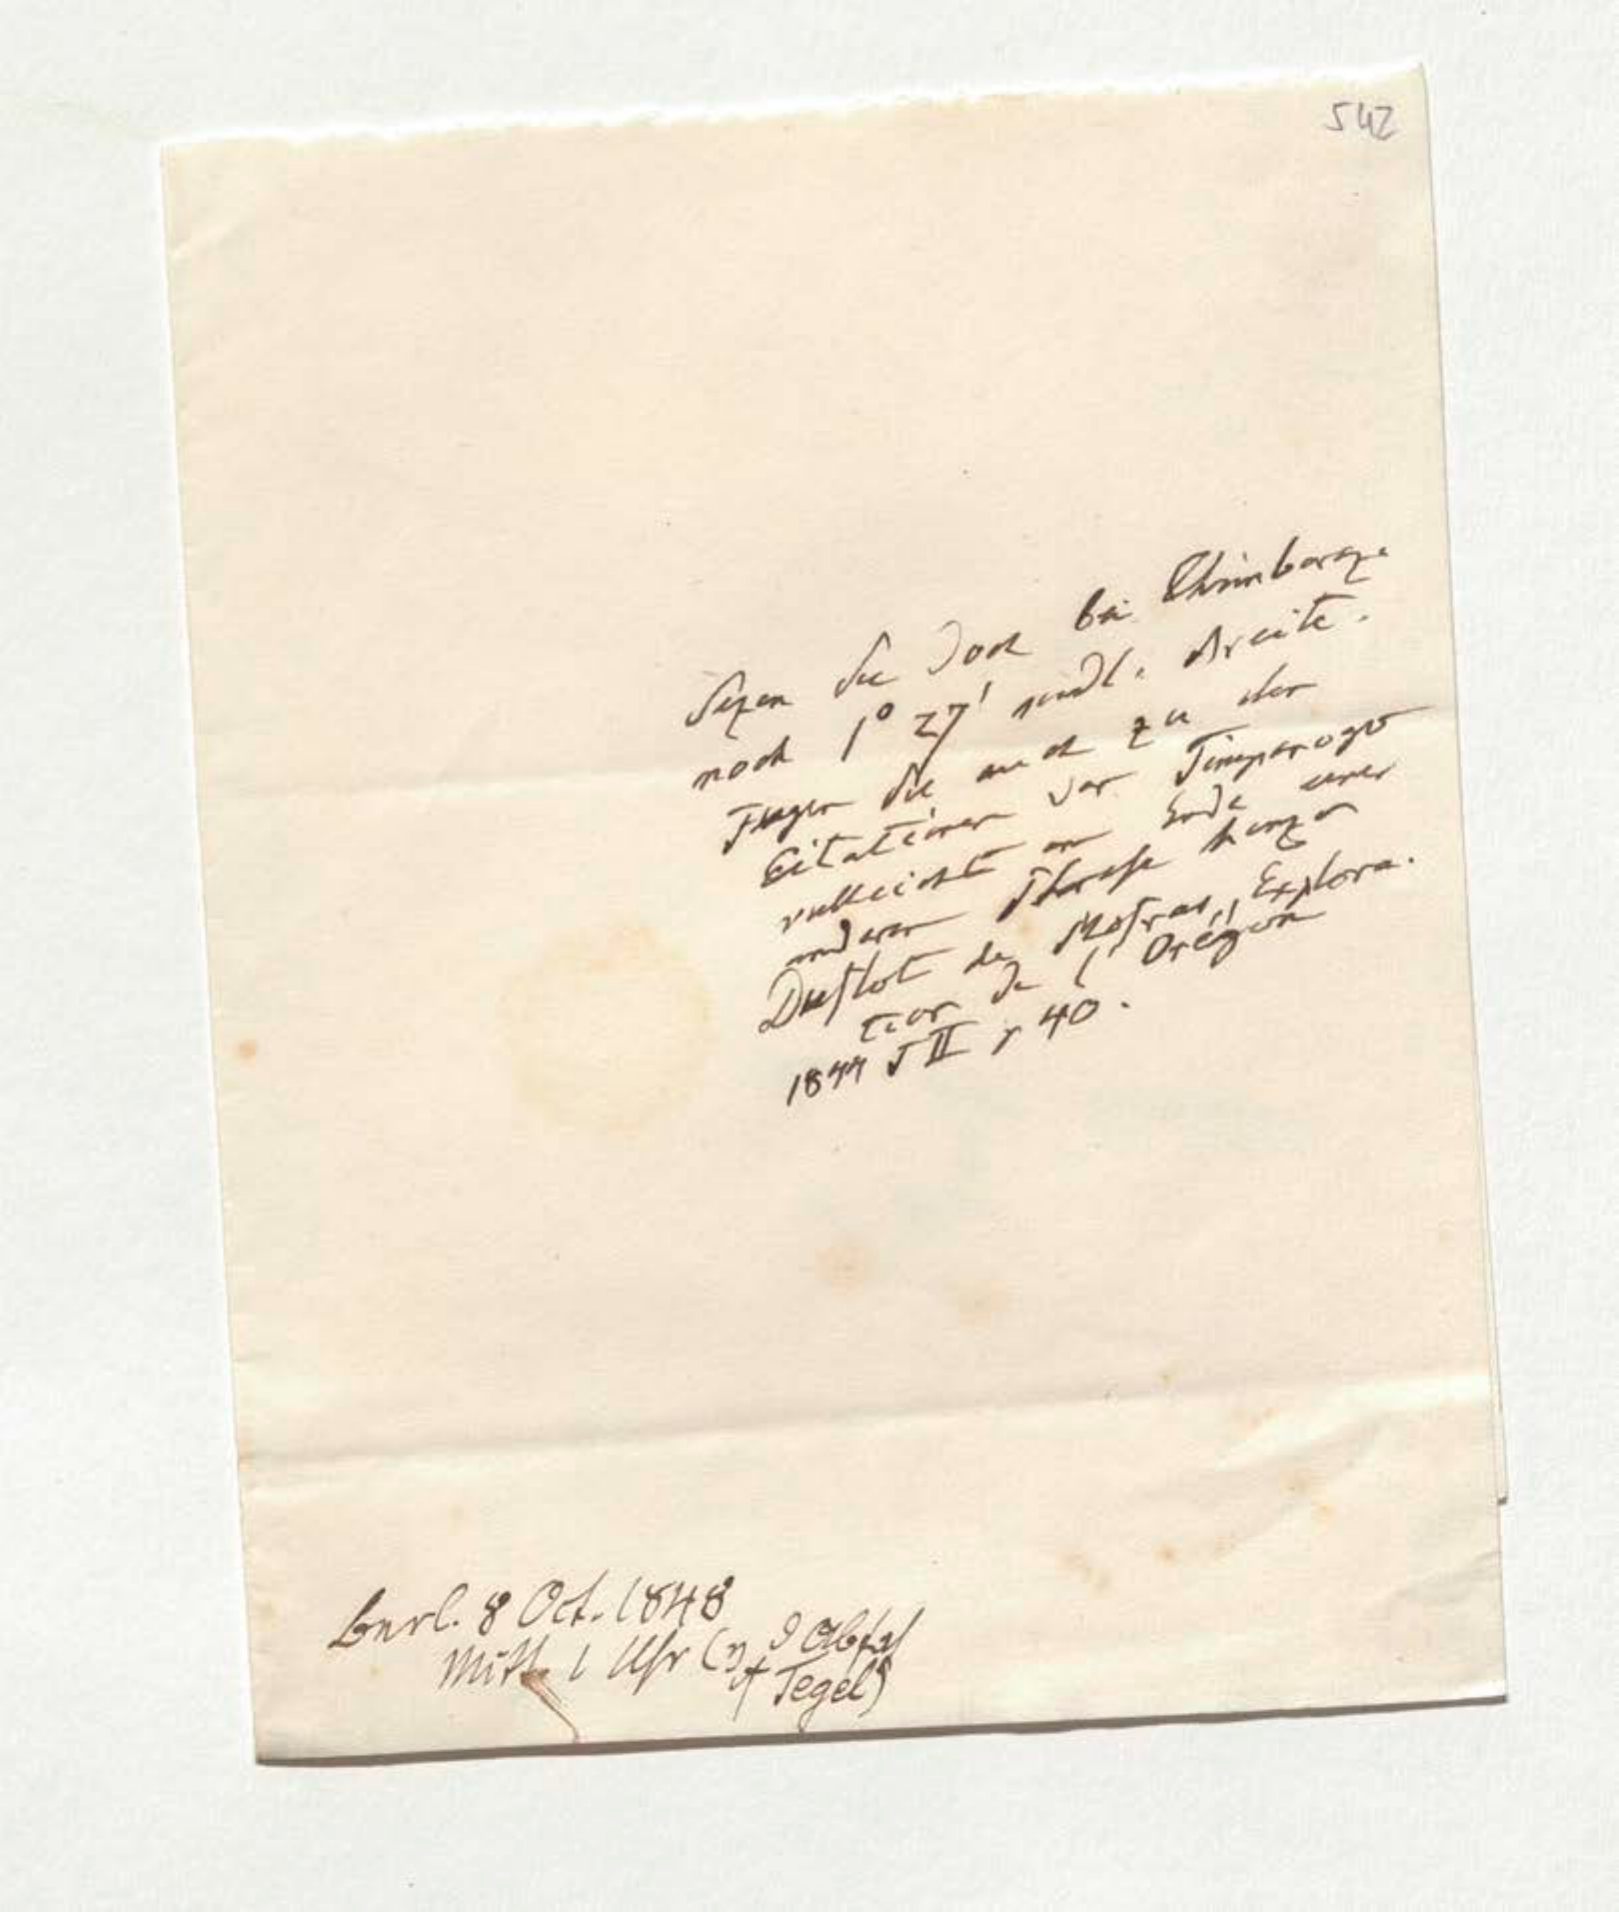 542
Sezen Sie doch bei Chimborazo
noch 1° 27' südl. Breite.
Fügen Sie auch zu den
Citationen von Timpanogo
vielleicht am Ende einer
anderen Phrase hinzu
Duflot de Mofras, „Explora-
tion de l'Orégon
1844 T II p 40.
Berl. 8 Oct. 1848
Mitt. 1 Uhr (n d Abfhrt
Tegel)